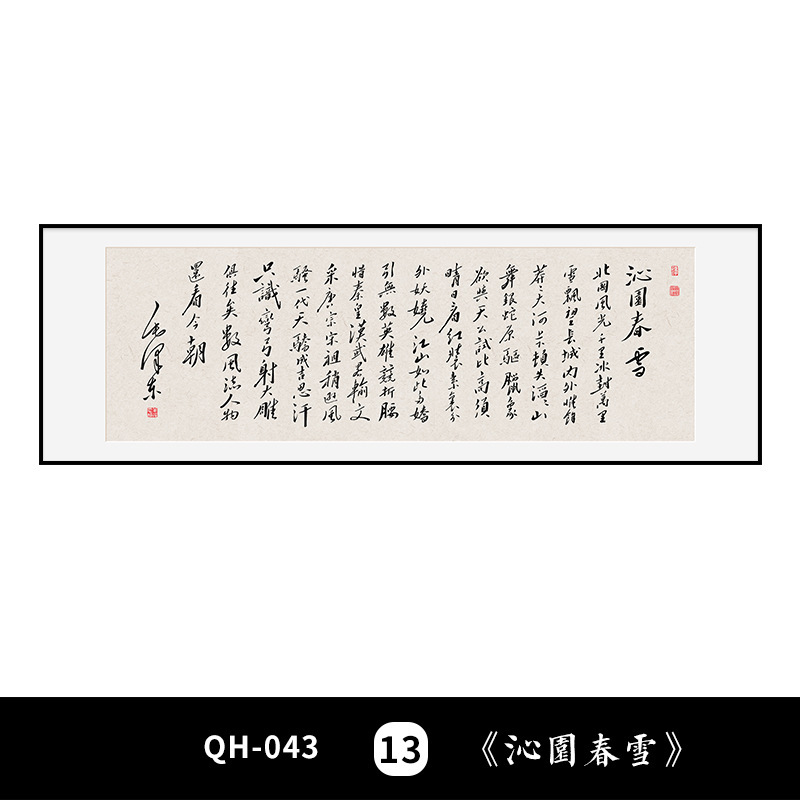 沁園春 雪
北國風光千里冰封萬里
雪飄望長城内外惟餘
莽〻大河上下頓失滔〻山
舞銀蛇原驅臘象
欲與天公試比高須
晴日看紅裝素裹分
外妖嬈江山如此多嬌
引無數英雄競折腰
惜秦皇漢武略輸文
采唐宗宋祖稍遜風
騷一代天驕成吉思汗
只識彎弓射大雕
俱往矣數風流人物
還看今朝
毛澤東
QH-043
13
《沁園春雪》